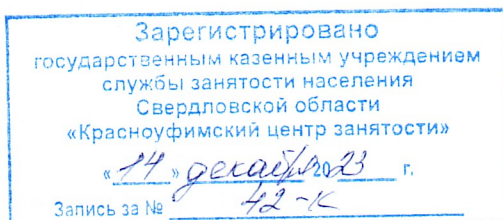 Зарегистрировано
государственным казенным учреждением
службы занятости населения
Свердловской области
«Красноуфимский центр занятости»
«14» декабря 2023 г.
Запись за № 42-К